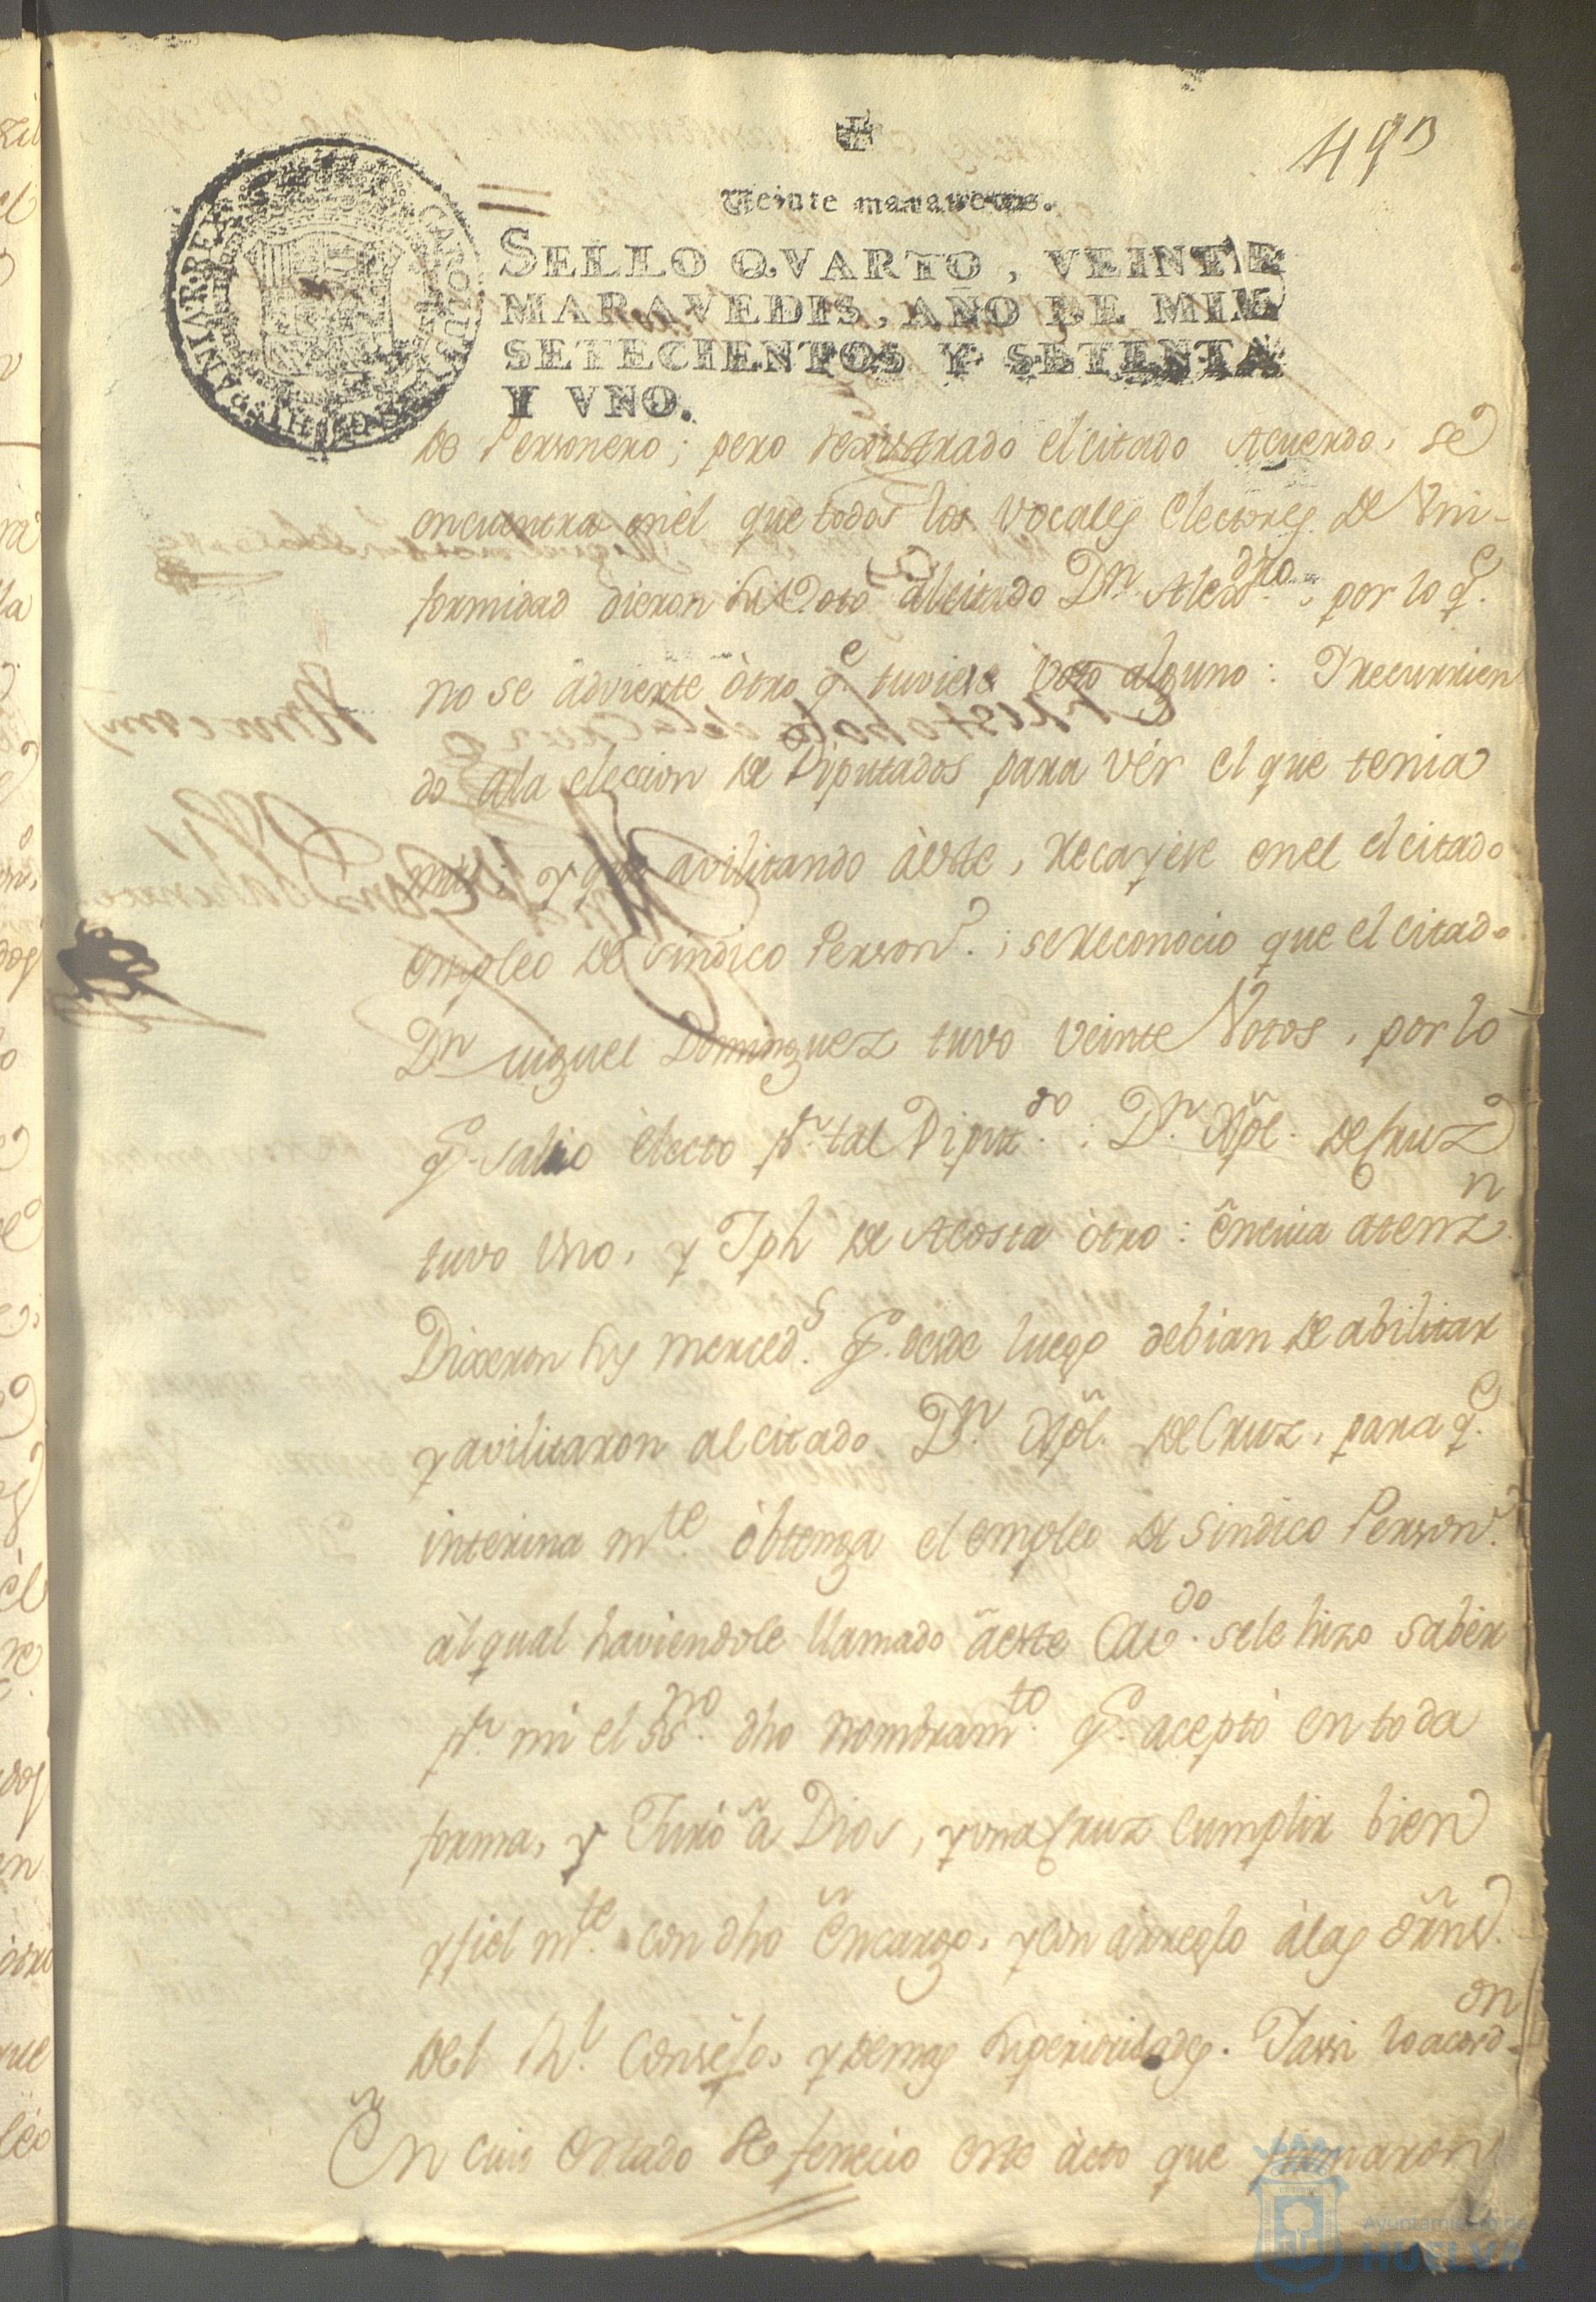 493
Veinte maravedis.
SELLO QVARTO, VEINTE
MARAVEDIS, AÑO DE MIL
SETECIENTOS Y SETENTA
Y VNO.
CAROLUS HISPANIAR REX
de Personero; pero rexistrado el citado Acuerdo, se
encuentra en èl que todos los Vocales electores de Vni-
formidad dieron su Voto al citado Dn. Alexdro., por lo qe.
no se advierte òtro qe. tuviese Voto alguno: Y recurrien
do àla eleccion de Diputados para vér el que tenia
mas, y que avilitando àeste, recayese en el el citado
empleo de Sindico Person.; se reconocio que el citado
Dn Miguel Dominguez tuvo veinte Votos, por lo
q. salio electo pr. tal Diputdo.: Dn. Xpl. de Cruz
tuvo Uno, y Jph de Acosta òtro: En cuia atenzn
Dixeron sus merceds. q. desde luego debian de abilitar
y avilitaron al citado Dn. Xpl. de Cruz, para qe.
interina mte. òbtenga el empleo de Sindico Person.
àl qual haviendole llamado àeste Cavdo. sele hizo saber
pr. mi el SSno. dho nombramto. q. aceptò en toda
forma, y Juró à Dios, y una Cruz cumplir bien
y fiel mte. con dho Encargo, y con arreglo àlas òrns.
del Rl. Consejo, y demas Superioridades. Y assi lo acordon.
En cuio estado se fenecio este acto que firmaron
Ayuntamiento de
HUELVA